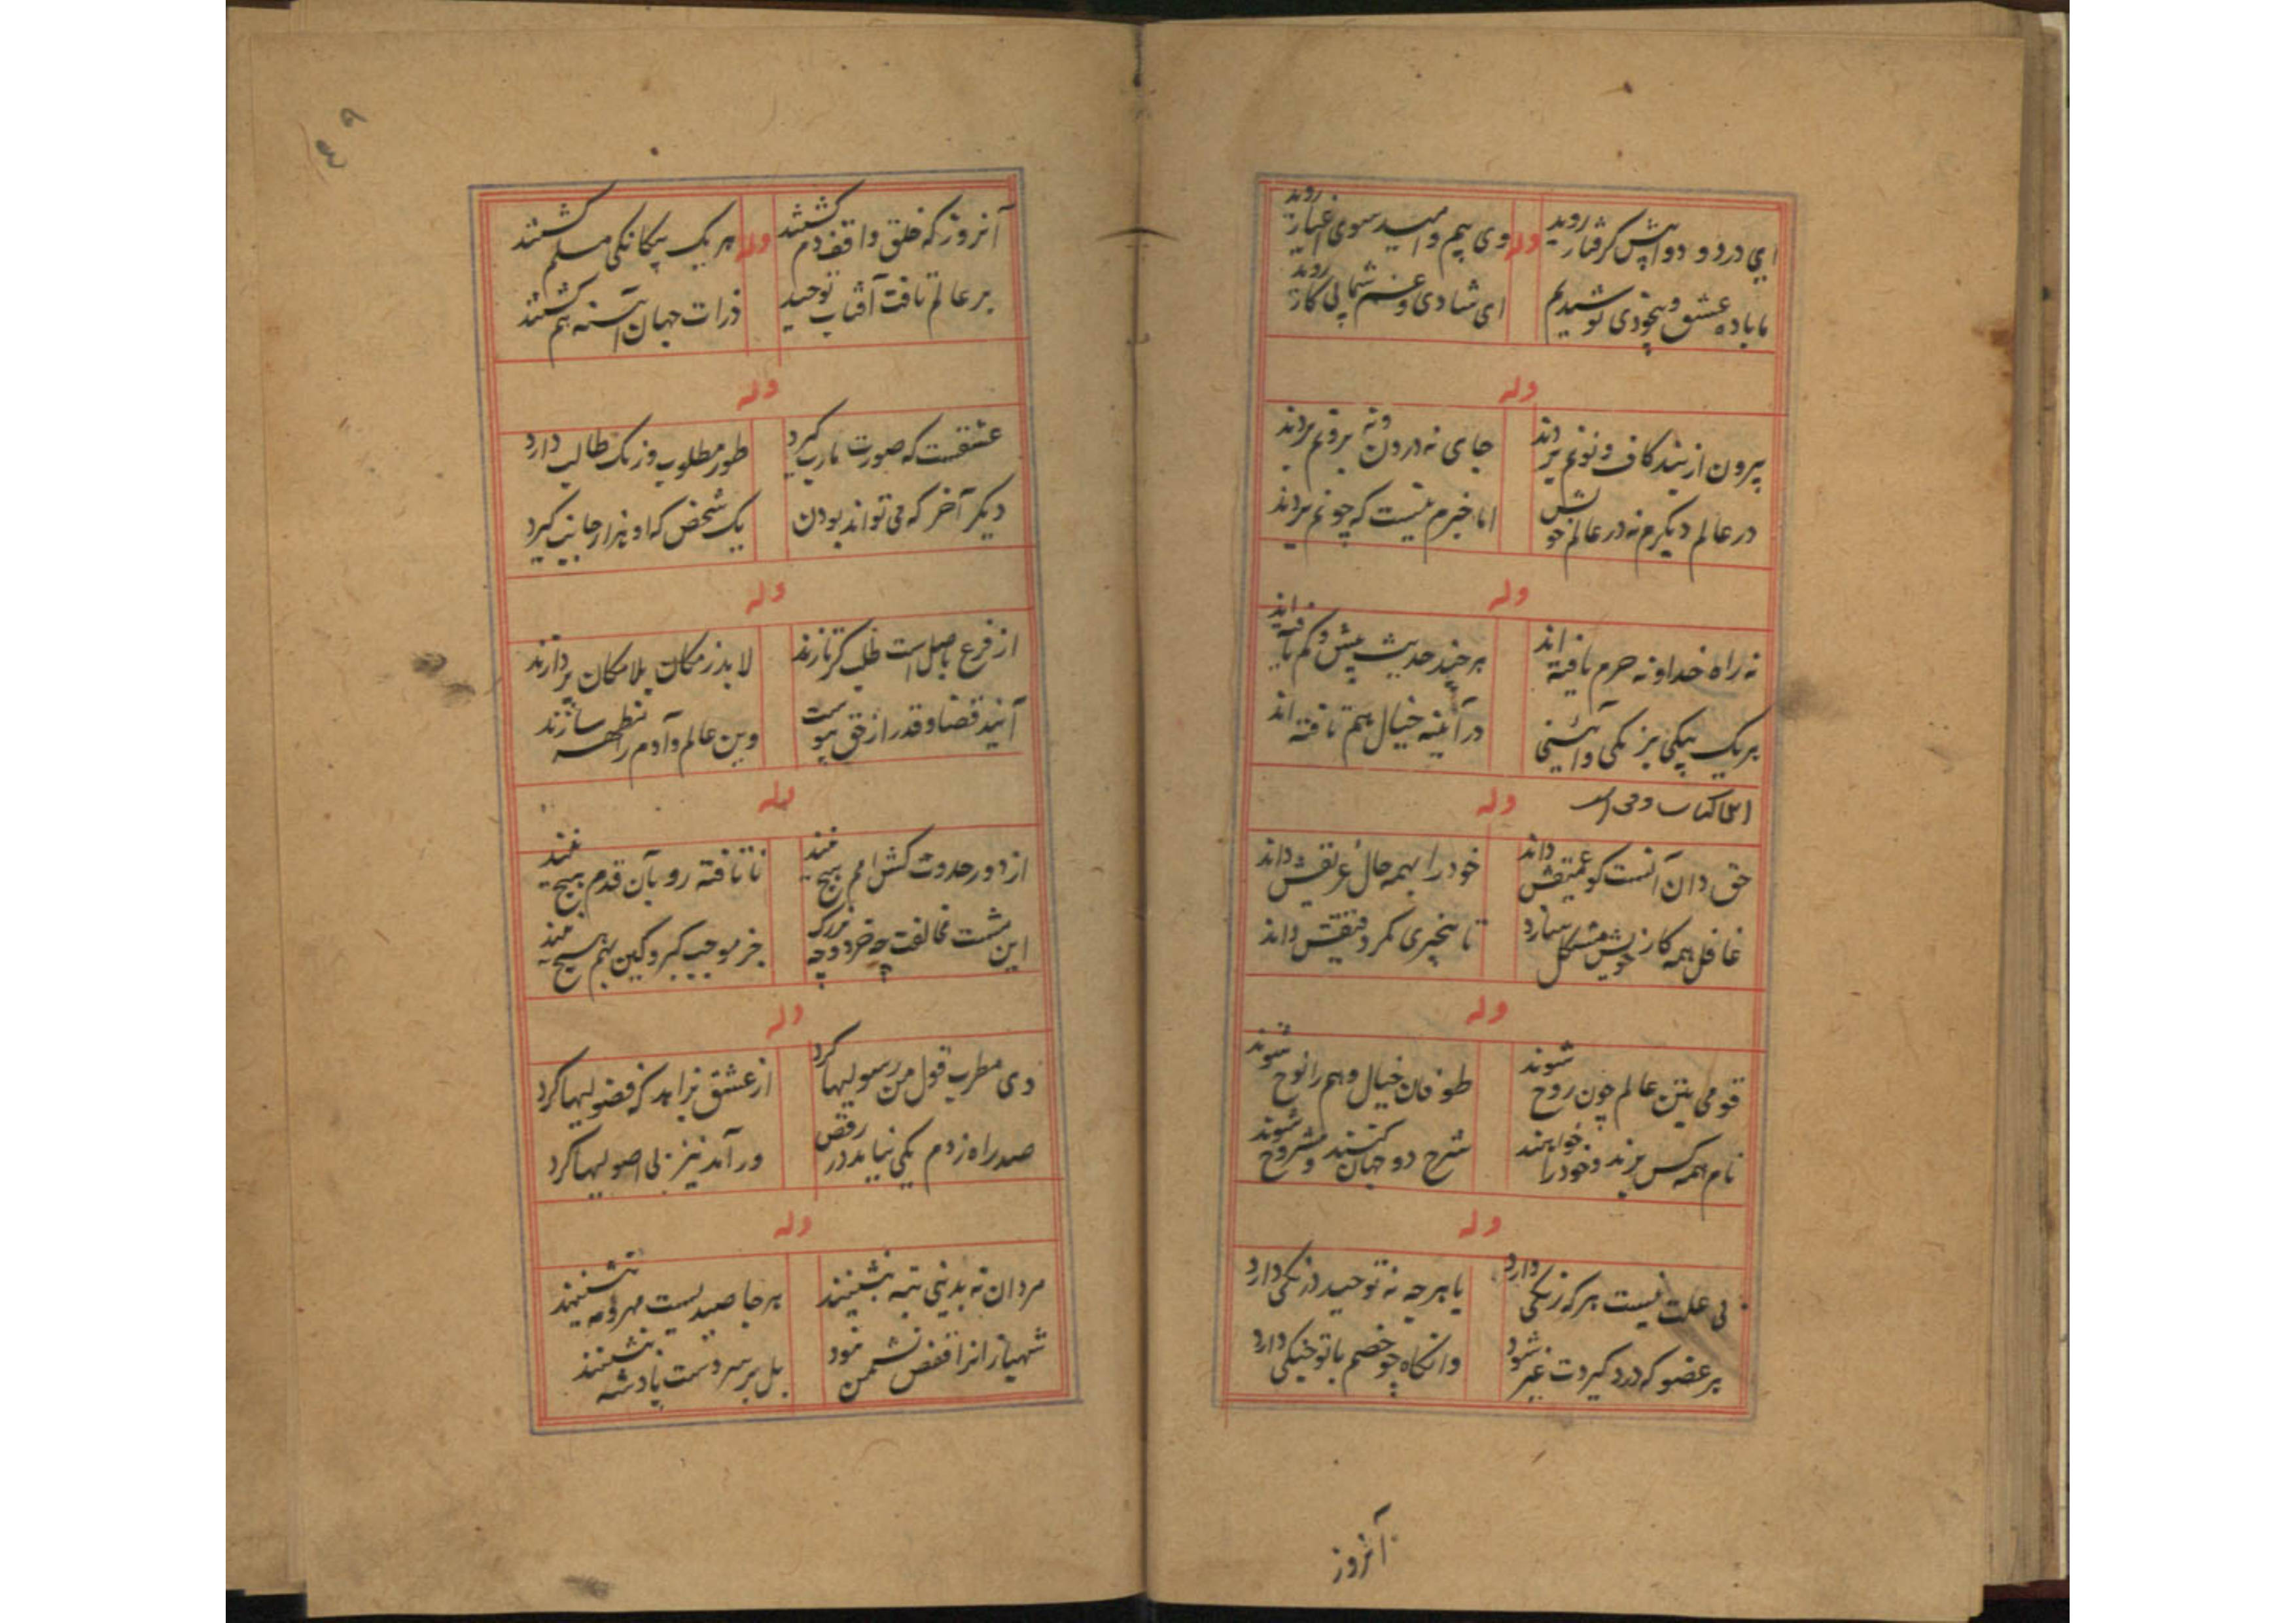 ای درد و دوا پیش گرفتار روید وله وی بیم و امید سوی اغیار روید
ما باده عشق و بیخودی نوشیدیم ای شادی و غم شما پی کار روید
وله
بیرون از بند کاف و نونم بردند جای نه درون و نه برونم بردند
در عالم دیگرم نه در عالم خویش اما خبرم نیست که چونم بردند
وله
نه راه خدا و نه حرم یافته اند هر چند حدیث بیش و کم یافته اند
هر یک بیکی بزنگی و آئینی در آینه خیال هم تافته اند
وله
حق دان آنست کو عمیقش داند خود را بهمه حال غریقش داند
غافل همه کار خویش مشکل شمارد تا بیخبری مگر دقیقش داند
وله
قومی بتن عالم چون روح شوند طوفان خیال وهم را نوح شوند
نام همه کس برند و خود را خواهند شرح دو جهان کنند و مشروح شوند
وله
بی علت نیست هر که رنگی دارد با هرچه نه توحید درنگی دارد
هر عضو که درد گیردت غیر شود وانگاه چو خصم با تو جنگی دارد
آنروز
۴۹
آنروز که خلق واقف دم گشتند وله هر یک بیگانگی مسلم گشتند
بر عالم تافت آفتاب توحید ذرات جهان آینه هم گشتند
وله
عشقست که صورت مارب گیرد طور مطلوب و رنگ طالب دارد
دیگر آخر که می تواند بودن یک شخص که او هزار جانب گیرد
وله
از فرع باصل است طلب گر تازند لابد ز مکان بلامکان پردازند
آیند قضا و قدر از حق پیوست وین عالم و آدم را بهم سازند
وله
از دور حدوث کش امم هیچ نیند نا تافته رو بآن قدم هیچ نیند
این مشت مخالفت چه خرد و چه بزرگ جز موجب کبر و کین بهم هیچ نیند
وله
دی مطرب قول من رسولیها کرد از عشق بزاهد که فضولیها کرد
صد راه زدم یکی نیامد در رقص ور آمد نیز بی اصولیها کرد
وله
مردان نه بدینی تمه بنشینند هرجا صیدیست بهر و مه بنشینند
شهبازانرا قفس نشمن نبود بل بر سر دست پادشه بنشینند